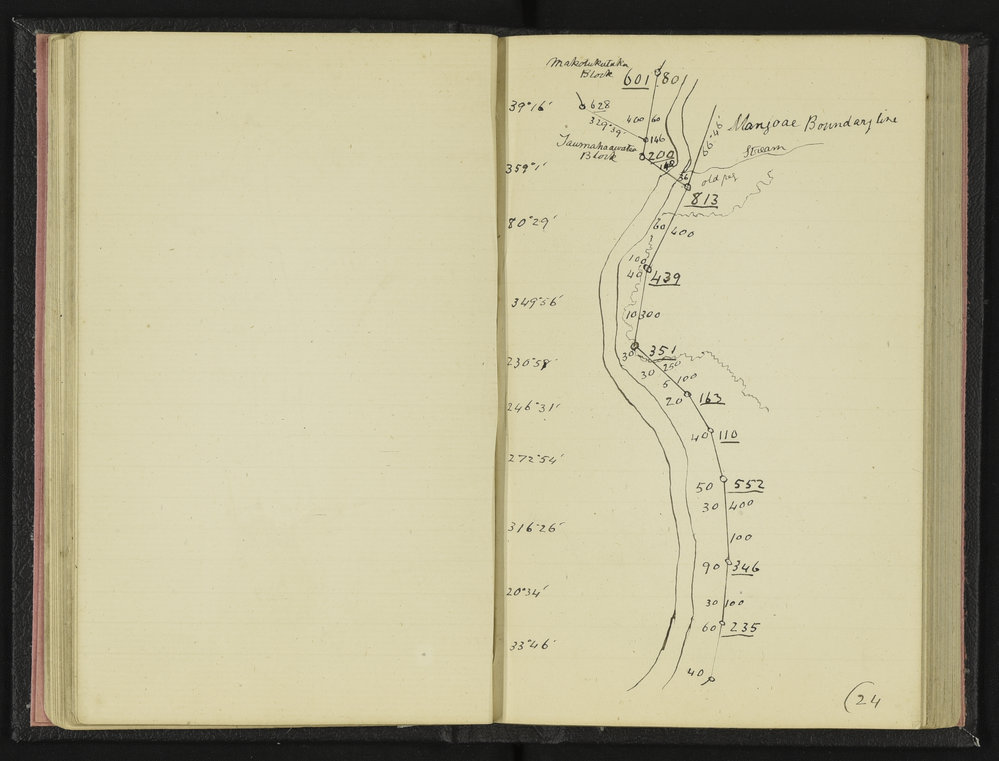 Makotukutuku
Block
601 801
39°16'
628
329°39'
400 60
146
66°46'
Mangoae Boundary line
Block
200
Stream
359°1'
36
old peg
813
80°29'
60 400
100
40 439
349°56'
10 300
30 351
230°58'
250
30
5 100
20 163
246°31'
40 110
272°54'
50 552
30 400
316°26'
100
90 346
20°34'
30 100
60 235
33°46'
40
24